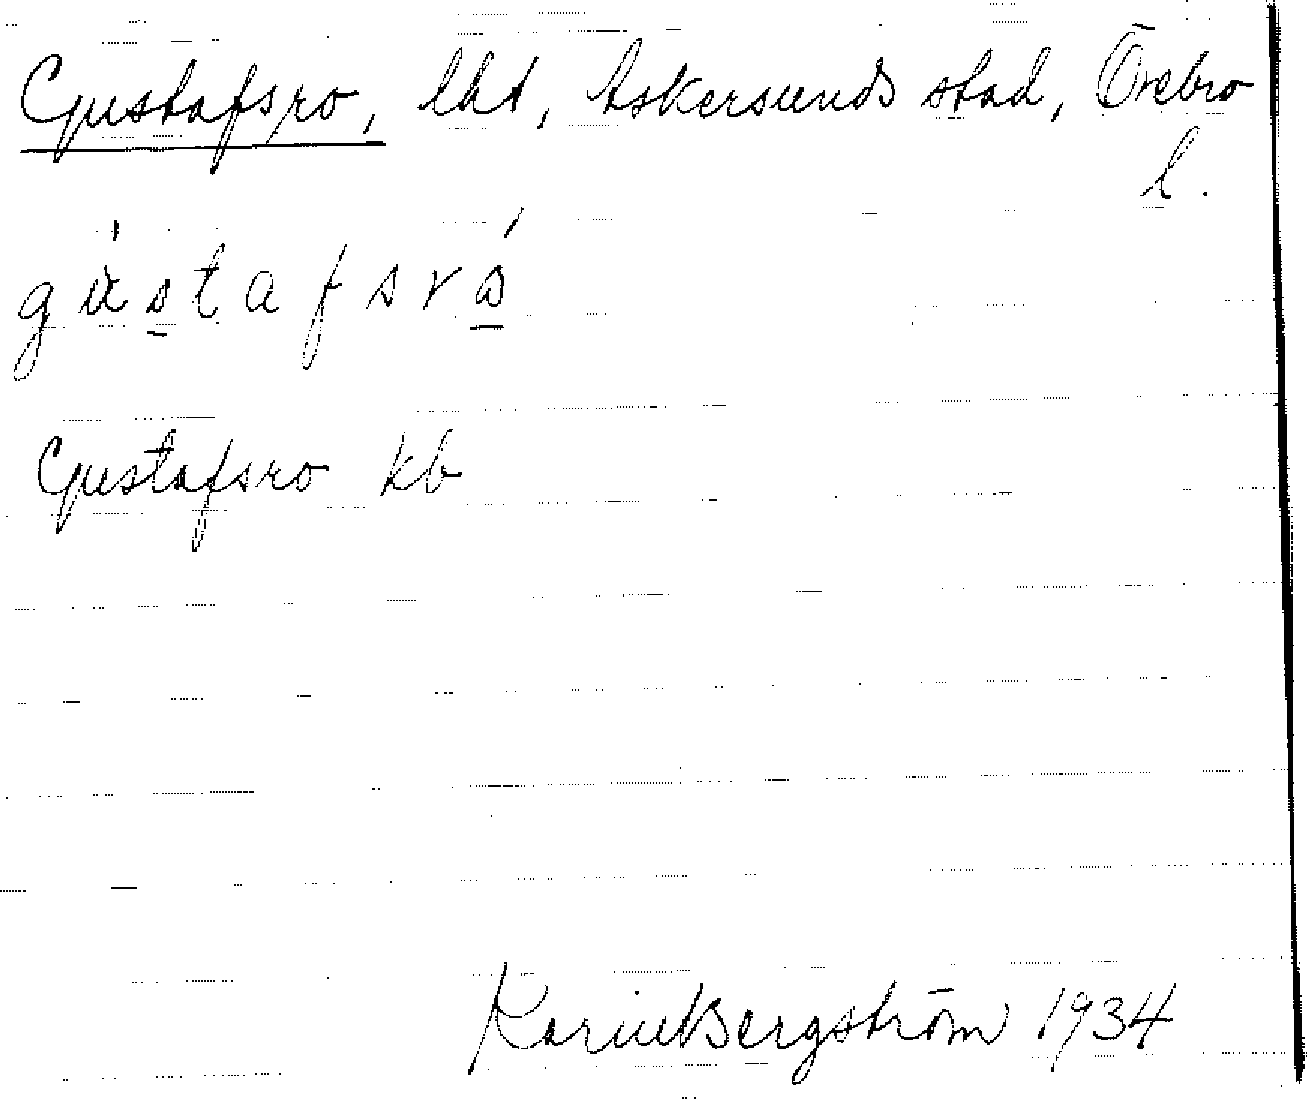 Gustafsro, lht, Askersunds stad, Örebro
l.
Gustafsro kb
Karin Bergström 1934